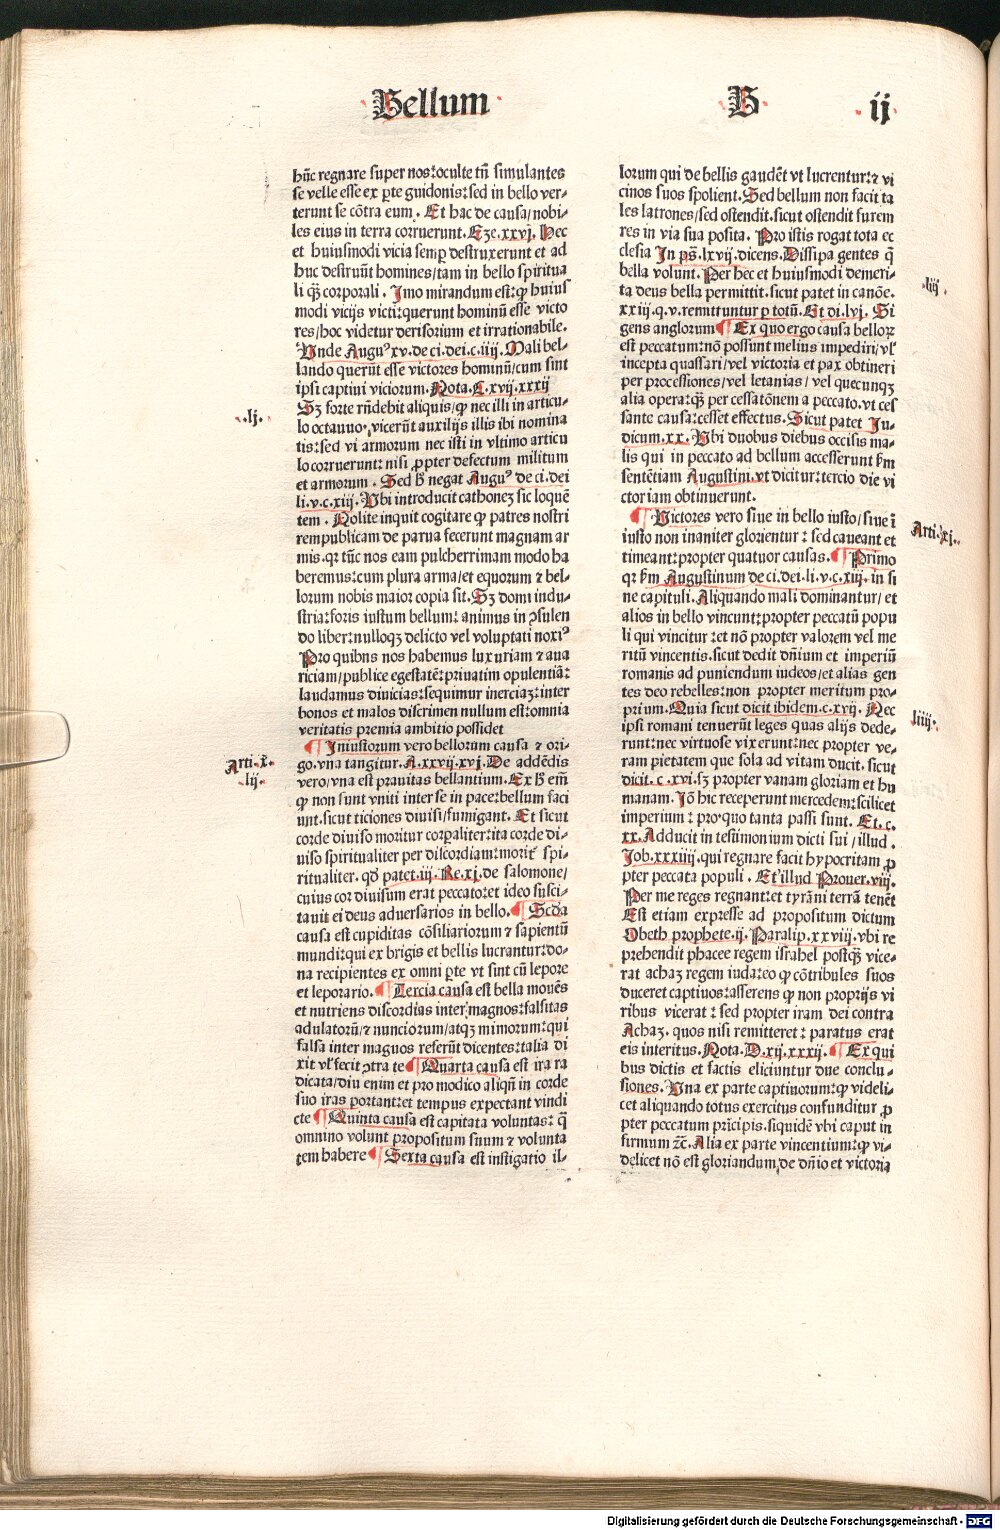 Bellum B ij
hūc regnare super nos: occulte tn̄ simulantes
se velle esse ex ꝑte guidonis: sed in bello ver-
terunt se cōtra eum. Et hac de causa/nobi-
les eius in terra corruerunt. Eze.xxvj. Hec
et huiusmodi vicia semꝑ destruxerunt et ad
huc destruūt homines/tam in bello spiritua
li qꝫ corporali. Imo mirandum est: ꝙ huius
modi vicijs victi: querunt hominū esse victo
res/hoc videtur derisorium et irrationabile.
Unde Auguꝰ xv. de ci. dei. c. iiij. Mali bel-
lando querūt esse victores hominū/cum sint
ipsi captiui viciorum. Nota. C. xvij. xxxij
.lj.
Sꝫ forte rn̄debit aliquis/ꝙ nec illi in articu-
lo octauo, vicerūt auxilijs illis ibi nomina
tis: sed vi armorum nec isti in vltimo articu
lo corruerunt: nisi ꝓpter defectum militum
et armorum. Sed ħ negat Auguꝰ de ci. dei
li. v. c. xij. Ubi introducit cathoneꝫ sic loquē
tem. Nolite inquit cogitare ꝙ patres nostri
rempublicam de parua fecerunt magnam ar
mis. qꝛ tūc nos eam pulcherrimam modo ha
beremus: cum plura arma/et equorum ⁊ bel-
lorum nobis maior copia sit. Sꝫ domi indu-
stria: foris iustum bellum: animus in ꝯsulen
do liber: nulloqꝫ delicto vel voluptati noxiꝰ
Pro quibus nos habemus luxuriam ⁊ aua
riciam/publice egestatē: priuatim opulentiā:
laudamus diuicias: sequimur inerciaꝫ: inter
bonos et malos discrimen nullum est: omnia
veritatis premia ambitio possidet
Arti.x.
lij.
¶ Iniustorum vero bellorum causa ⁊ ori-
go. vna tangitur. A. xxvij. xvj. De addēdis
vero/vna est prauitas bellantium. Ex ħ em̄
ꝙ non sunt vniti inter se in pace: bellum faci
unt. sicut ticiones diuisi/fumigant. Et sicut
corde diuiso moritur corꝑaliter: ita corde di-
uiso spiritualiter per discordiam: morit᷑ spi-
ritualiter. qd̄ patet. iij. Re. xj. de salomone/
cuius cor diuisum erat peccato: et ideo susci-
tauit ei deus aduersarios in bello. ¶ Scd̄a
causa est cupiditas cōsiliariorum ⁊ sapientū
mundi: qui ex brigis et bellis lucrantur: do-
na recipientes ex omni ꝑte vt sint cū lepore
et leporario. ¶ Tercia causa est bella mouēs
et nutriens discordias inter magnos: falsitas
adulatorū/⁊ nunciorum/atqꝫ mimorum: qui
falsa inter magnos referūt dicentes: talia di
xit vl̓ fecit ꝯtra te ¶ Quarta causa est ira ra
dicata/diu enim et pro modico aliqn̄ in corde
suo iras portant: et tempus expectant vindi
cte ¶ Quinta causa est capitata voluntas: qꝫ
omnino volunt propositum suum ⁊ volunta
tem habere ¶ Sexta causa est instigatio il-
lorum qui de bellis gaudēt vt lucrentur: ⁊ vi
cinos suos spolient. Sed bellum non facit ta
les latrones/sed ostendit. sicut ostendit furem
res in via sua posita. Pro istis rogat tota ec
clesia In ps̄. lxvij. dicens. Dissipa gentes q̄
bella volunt. Per hec et huiusmodi demeri-
.liij.
ta deus bella permittit. sicut patet in canōe.
xxiij. q. v. remittuntur p totū. Et di. lvj. Si
gens anglorum ¶ Ex quo ergo causa belloꝝ
est peccatum: nō possunt melius impediri/vl̓
incepta quassari/vel victoria et pax obtineri
per processiones/vel letanias/vel quecunqꝫ
alia opera: qꝫ per cessatōnem a peccato. vt ces
sante causa: cesset effectus. Sicut patet Ju-
dicum. xx. Ubi duobus diebus occisis ma-
lis qui in peccato ad bellum accesserunt ẜm
sentētiam Augustini. vt dicitur: tercio die vi
ctoriam obtinuerunt.
Arti.xj.
¶ Victores vero siue in bello iusto/siue ī
iusto non inaniter glorientur: sed caueant et
timeant: propter quatuor causas. ¶ Primo
qꝛ ẜm Augustinum de ci. dei. li. v. c. xij. in fi
ne capituli. Aliquando mali dominantur/et
alios in bello vincunt: propter peccatū popu
li qui vincitur: et nō propter valorem vel me
ritū vincentis. sicut dedit dn̄ium et imperiū
romanis ad puniendum iudeos/et alias gen
tes deo rebelles: non propter meritum pro-
prium. Quia sicut dicit ibidem. c. xvij. Nec
liiij.
ipsi romani tenuerūt leges quas alijs dede-
runt: nec virtuose vixerunt: nec propter ve-
ram pietatem que sola ad vitam ducit. sicut
dicit. c. xvj. sꝫ propter vanam gloriam et hu
manam. Iō hic receperunt mercedem: scilicet
imperium: pro quo tanta passi sunt. Et. c.
xx. Adducit in testimonium dicti sui/illud.
Job. xxxiiij. qui regnare facit hypocritam ꝓ
pter peccata populi. Et illud Prouer. viij.
Per me reges regnant: et tyrāni terrā tenēt
Est etiam expresse ad propositum dictum
Obeth prophete. ij. Paralip. xxviij. vbi re
prehendit phacee regem israhel postqꝫ vice-
rat achaꝫ regem iuda: eo ꝙ cōtribules suos
duceret captiuos: asserens ꝙ non proprijs vi
ribus vicerat: sed propter iram dei contra
Achaꝫ. quos nisi remitteret: paratus erat
eis interitus. Nota. D. xij. xxxij. ¶ Ex qui
bus dictis et factis eliciuntur due conclu-
siones. Una ex parte captiuorum: ꝙ videli-
cet aliquando totus exercitus confunditur ꝓ
pter peccatum prīcipis. siquidē vbi caput in
firmum ⁊c̄. Alia ex parte vincentium: ꝙ vi-
delicet nō est gloriandum, de dn̄io et victoria
Digitalisierung gefördert durch die Deutsche Forschungsgemeinschaft - DFG